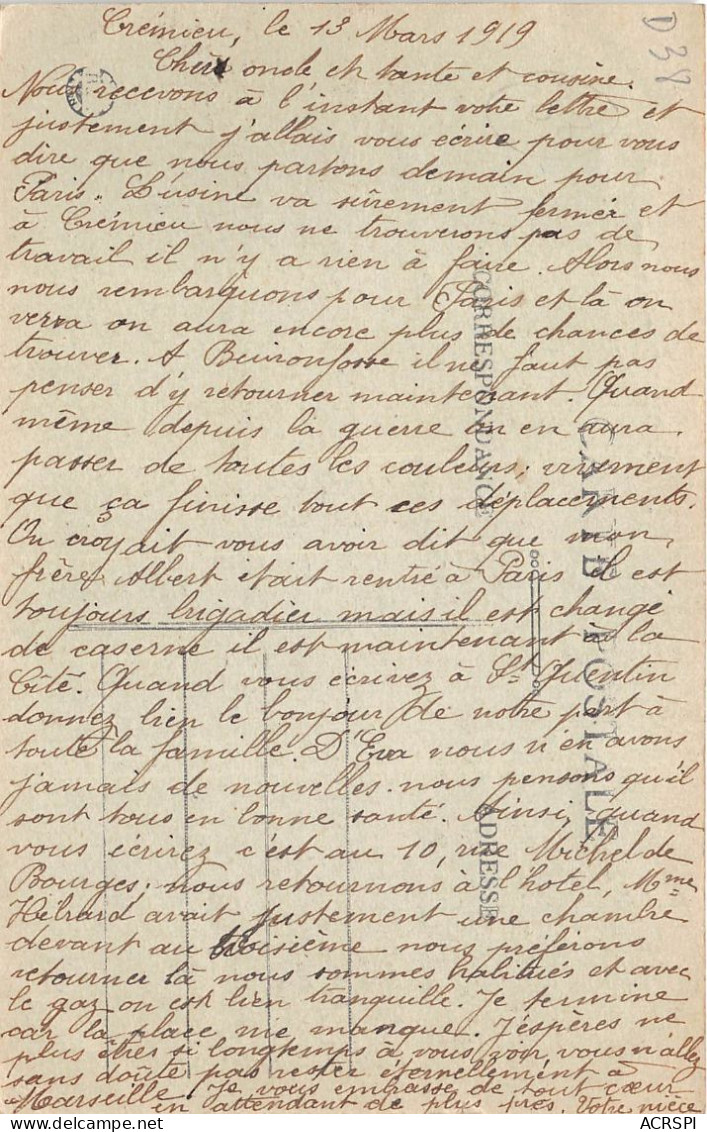 Crémieu, le 13 Mars 1919
D 38
Chers oncle et tante et cousine.
Nous recevons à l'instant votre lettre et
justement j'allais vous écrire pour vous
dire que nous partons demain pour
Paris. L'usine va sûrement fermer et
à Crémieu nous ne trouverons pas de
travail il n'y a rien à faire. Alors nous
nous rembarquons pour Paris et là on
verra on aura encore plus de chances de
trouver. A Buironfosse il ne faut pas
penser d'y retourner maintenant. Quand
même depuis la guerre on en aura
passer de toutes les couleurs, vivement
que ça finisse tout ces déplacements.
On croyait vous avoir dit que mon
frère Albert était rentré à Paris il est
toujours brigadier mais il est changé
de caserne il est maintenant à la
Cité. Quand vous écrivez à St Quentin
donnez bien le bonjour de notre part à
toute la famille. D'Eva nous n'en avons
jamais de nouvelles. nous pensons qu'il
sont tous en bonne santé. Ainsi, quand
vous écrirez c'est au 10, rue Michel de
Bourges, nous retournons à l'hôtel, Mme
Hébrard avait justement une chambre
devant au troisième nous préférons
retourner là nous sommes habitués et avec
le gaz on est bien tranquille. Je termine
car la place me manque. J'espères ne
plus êtres si longtemps à vous voir, vous n'allez
sans doute pas rester éternellement à
Marseille. Je vous embrasse de tout cœur
en attendant de plus près. Votre nièce
CARTE POSTALE
CORRESPONDANCE
ADRESSE
ACRSPI